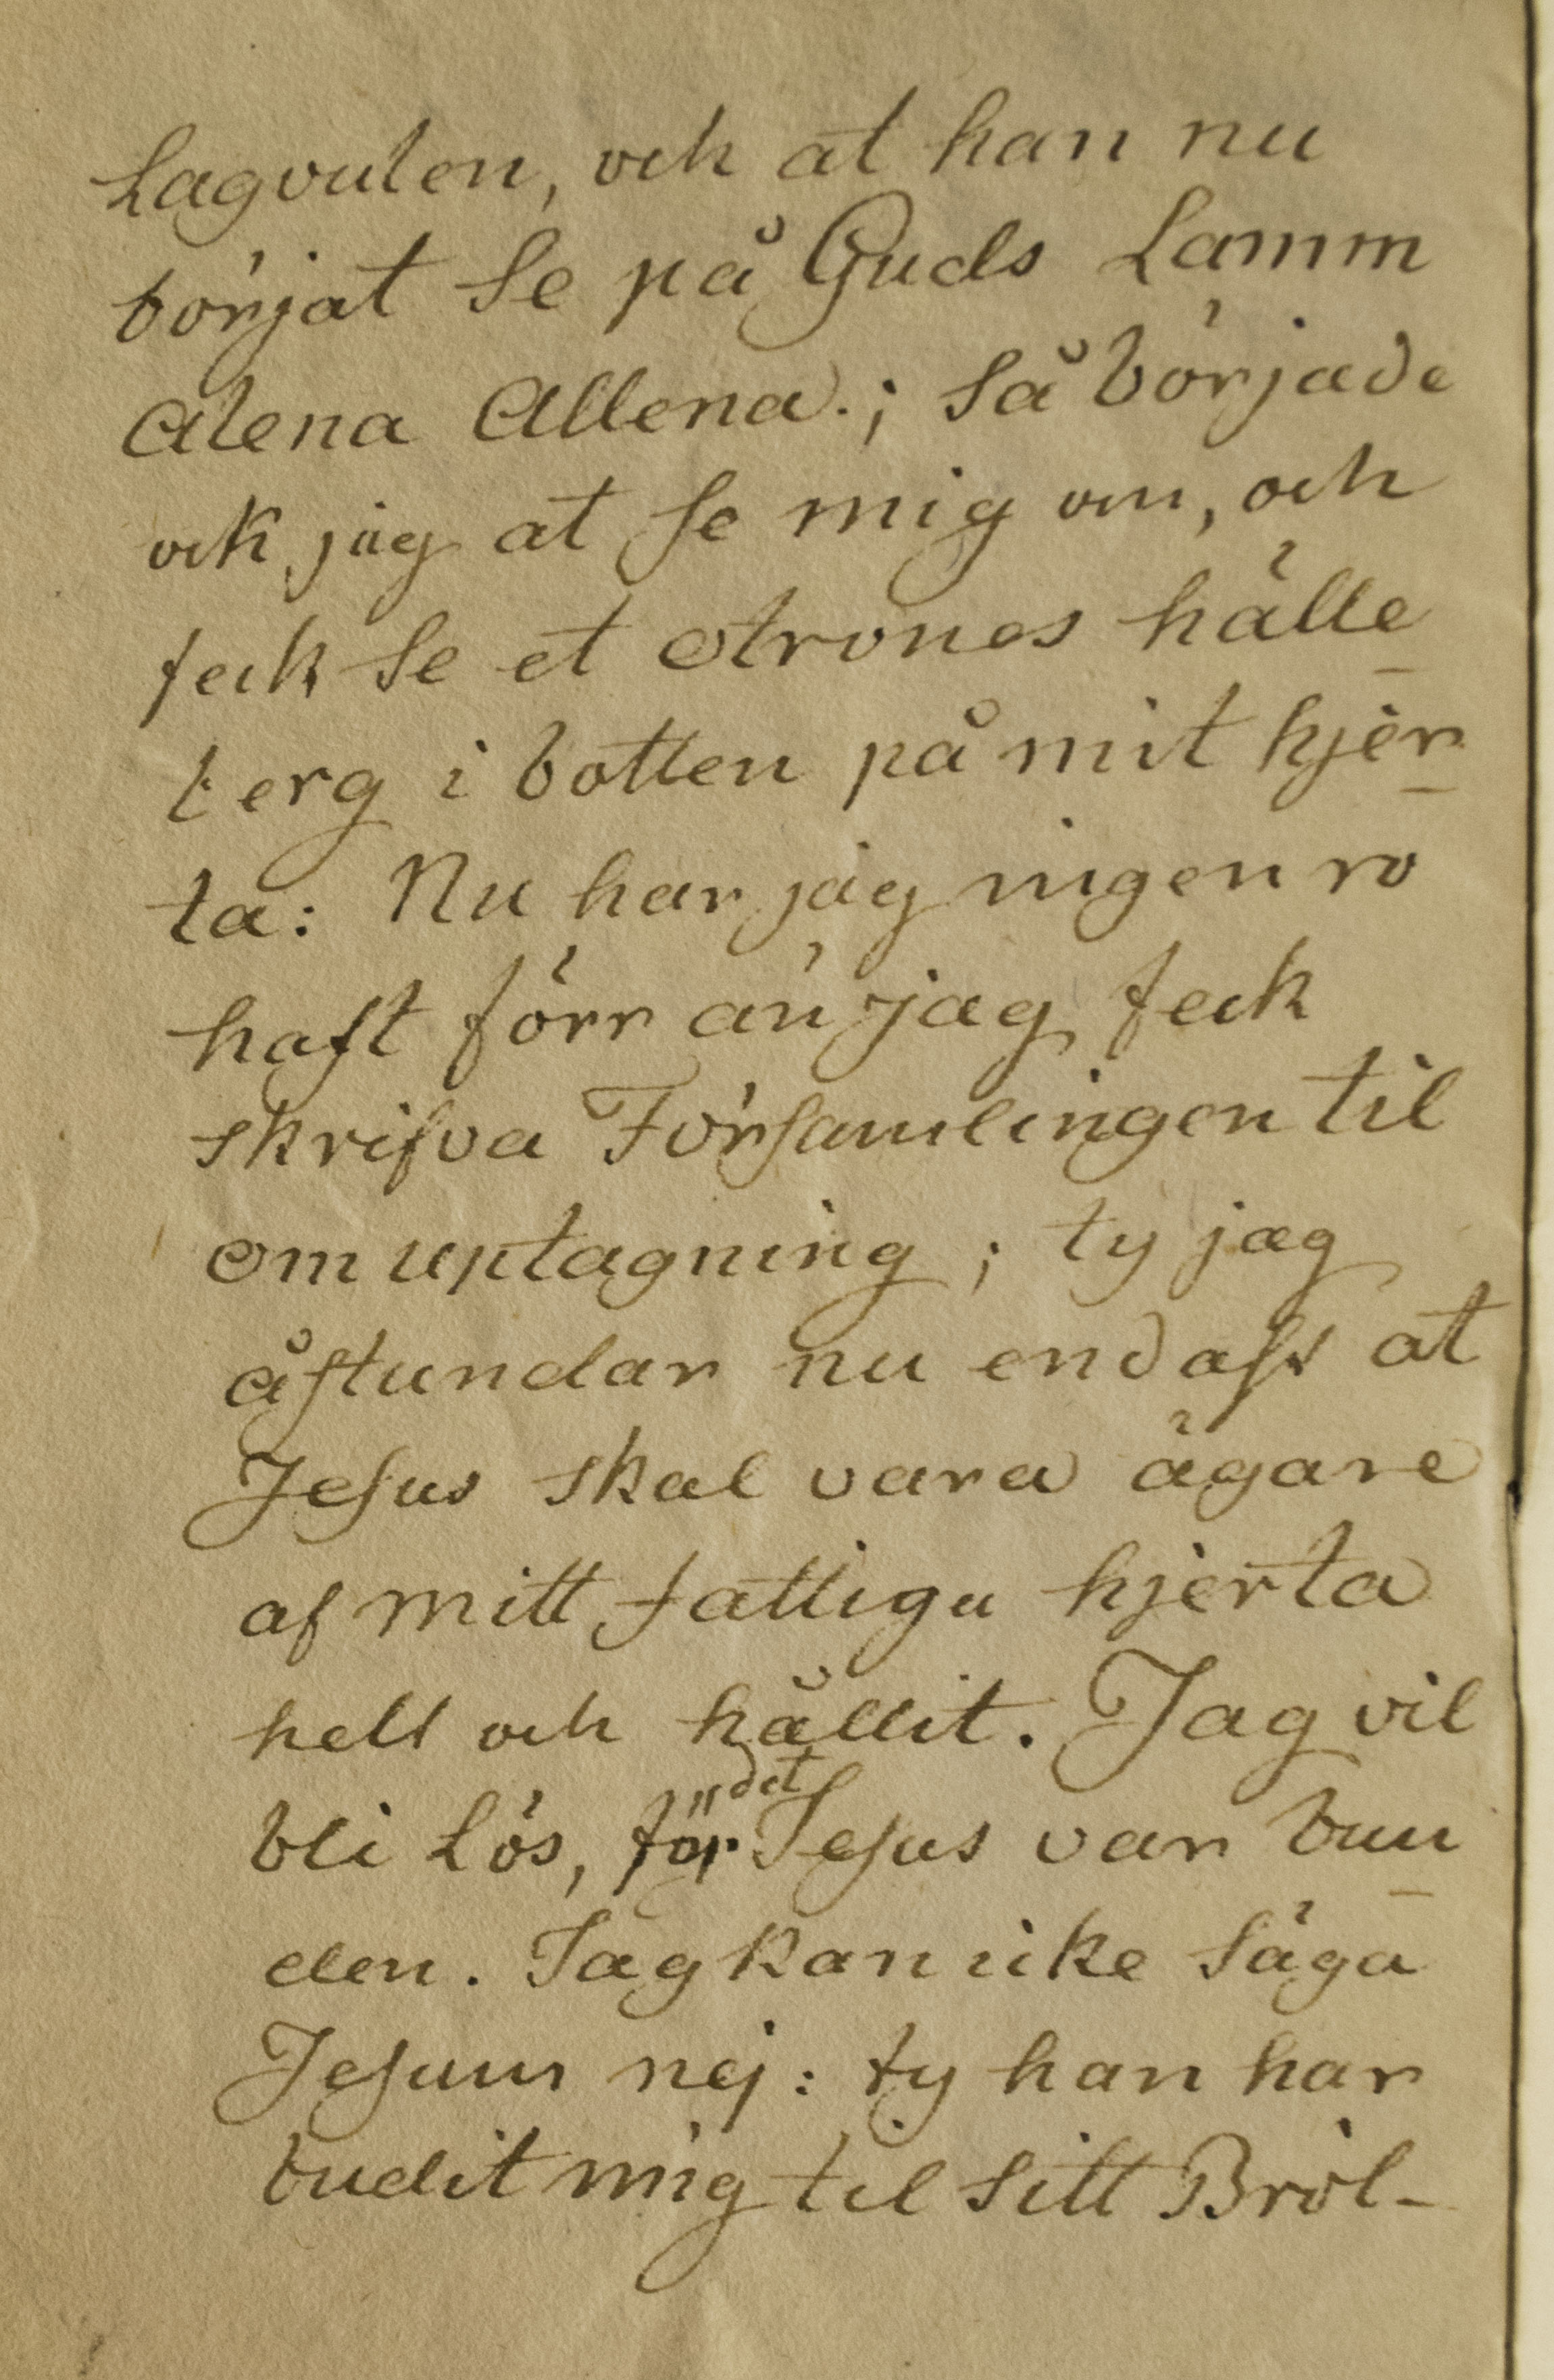 Lagvulen, och at han nu
börjat Se på Guds Lamm
Alena Allena.; Så började
ock jag at Se mig om, och
feck Se et Otrones hälle
berg i botten på mit hjer
ta: Nu har jag ingen ro
haft förr än jag feck
skrifva Församlingen til
om uptagning; ty jag
åstundar nu endast at
Jesus skal vara ägare
af mitt fattiga hjerta
helt och hållit. Jag vil
bli Lös, för det Jesus var bun
den. Jag kan icke Säga
Jesum nej: ty han har
budit mig til Sitt Bröl-